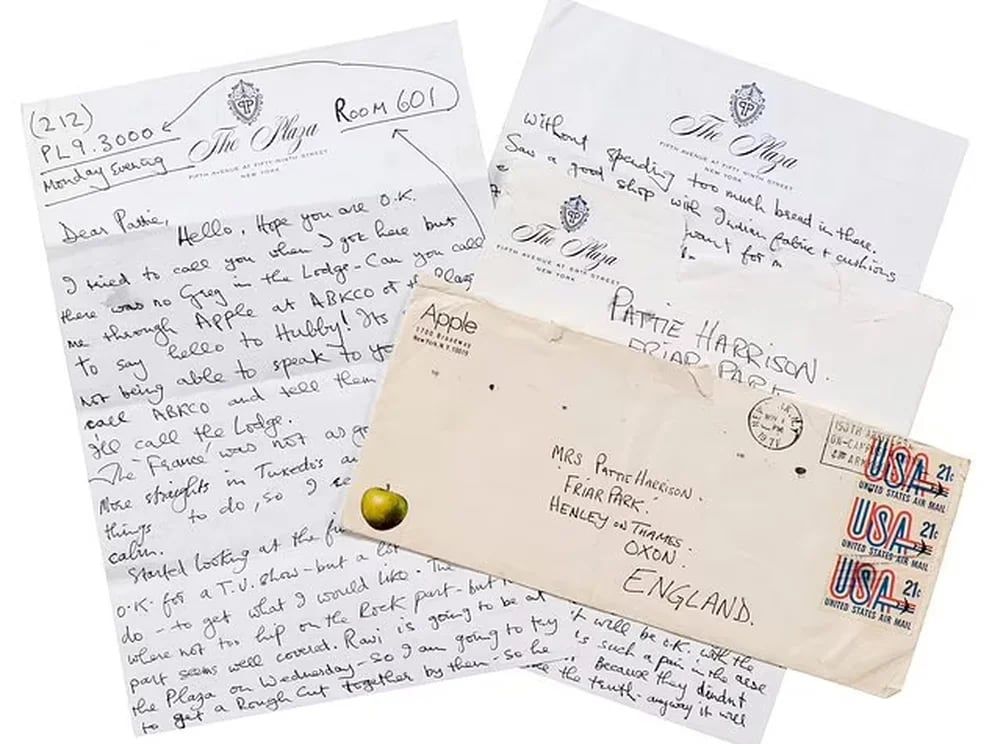 (212)
PL9.3000
Monday Evening
ROOM 601
The Plaza
FIFTH AVENUE AT FIFTY-NINTH STREET
NEW YORK
Dear Pattie,
Hello. Hope you are O.K.
I tried to call you when I got here but
there was no Greg in the Lodge - Can you call
me through Apple at ABKCO or the Plaza
to say hello to Hubby! Its
not being able to speak to yo
call ABKCO and tell them
I'll call the Lodge.
The 'France' was not as go
More straights in Tuxedo's a
things to do, so I
cabin.
Started looking at the
O.K. for a T.V. show - but a lot
do - to get what I would like. The
where not too hip on the Rock part - but
part seems well covered. Ravi is going to be at
the Plaza on Wednesday - So I am going to try
to get a Rough Cut together by them - So he
The Plaza
FIFTH AVENUE AT FIFTY-NINTH STREET
NEW YORK
without spending too much bread in there.
Saw a good shop with Indian fabric + cushions
want for m
The Plaza
FIFTH AVENUE AT FIFTY-NINTH STREET
NEW YORK
PATTIE HARRISON.
FRIAR PARK
Apple
1700 BROADWAY
New York, N.Y. 10019
1971
USA 21c
UNITED STATES AIR MAIL
USA 21c
UNITED STATES AIR MAIL
USA 21c
UNITED STATES AIR MAIL
MRS PATTIE HARRISON.
FRIAR PARK.
HENLEY ON THAMES.
OXON.
ENGLAND.
it will be O.K. with the
is such a pain in the arse
Because they didn't
the truth - anyway it will